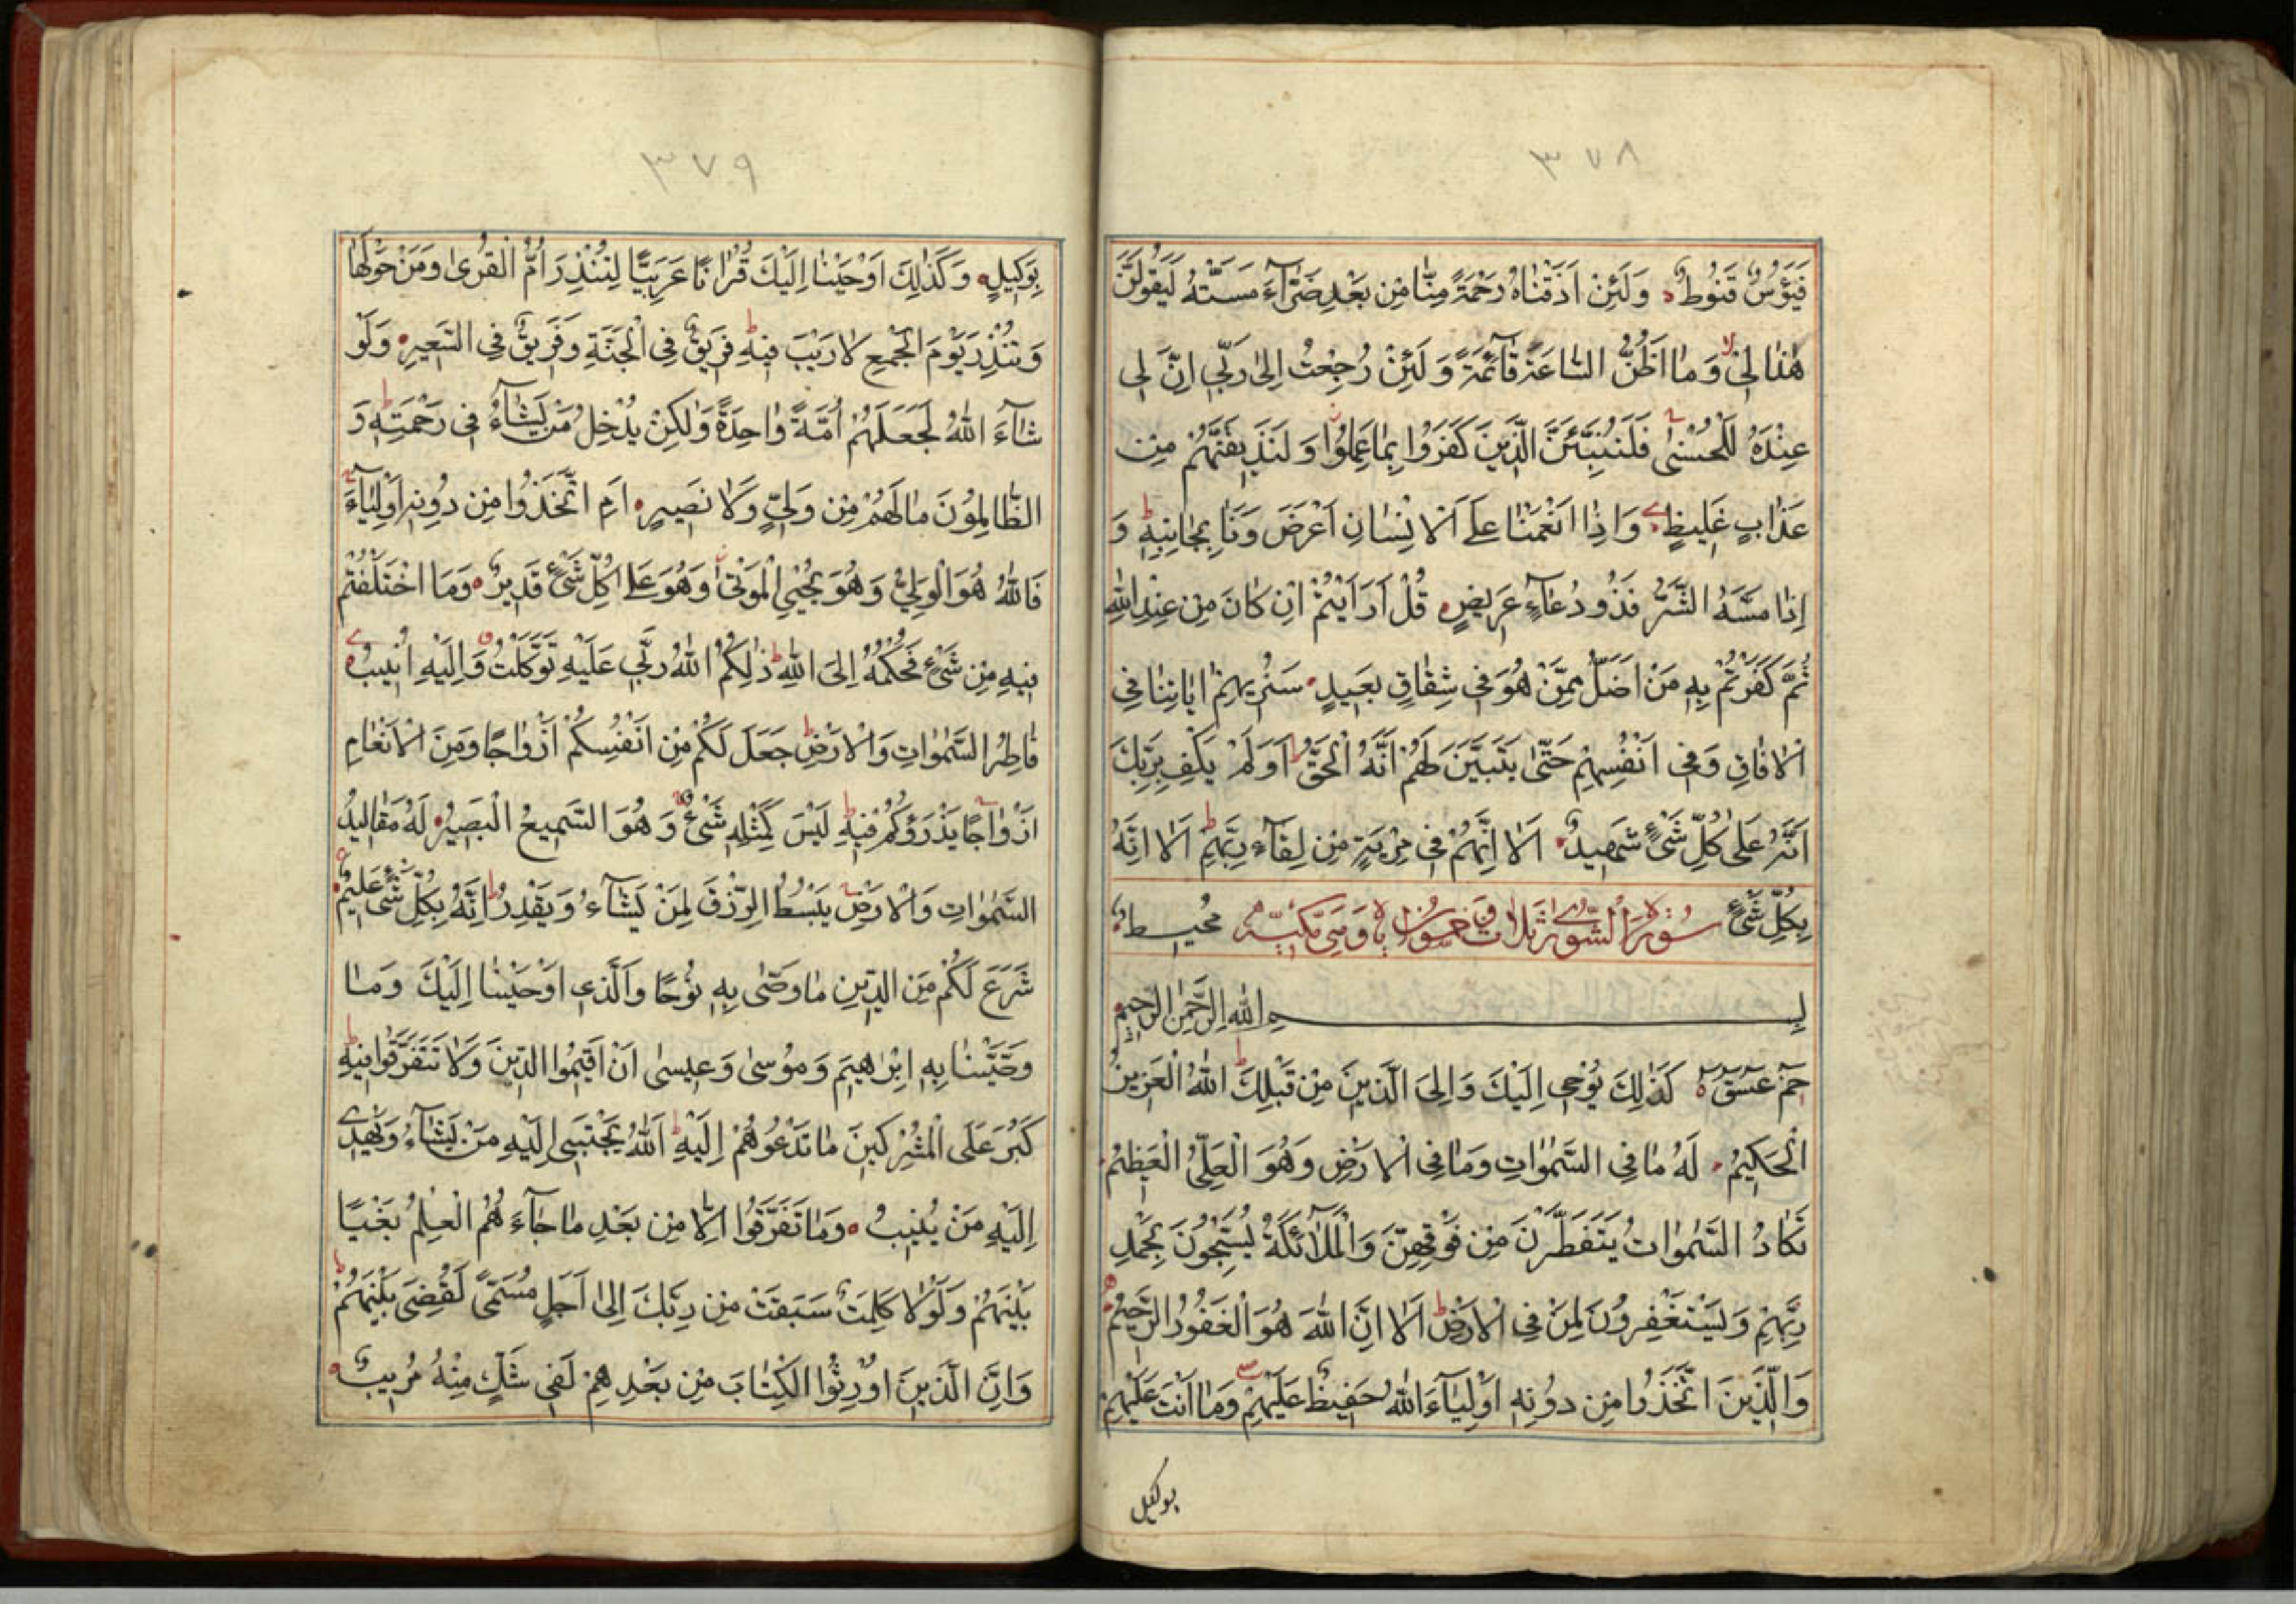 ٣٧٨
فَيَؤُسٌ قَنُوطٌ وَلَئِنْ اَذَقْنَاهُ رَحْمَةً مِنَّا مِنْ بَعْدِ ضَرَّآءَ مَسَّتْهُ لَيَقُولَنَّ
هٰذَا لِى وَمَا اَظُنُّ السَّاعَةَ قَآئِمَةً وَلَئِنْ رُجِعْتُ اِلٰى رَبِّى اِنَّ لِى
عِنْدَهُ لَلْحُسْنٰى فَلَنُنَبِّئَنَّ الَّذِينَ كَفَرُوا بِمَا عَمِلُوا وَلَنُذِيقَنَّهُمْ مِنْ
عَذَابٍ غَلِيظٍ وَاِذَا اَنْعَمْنَا عَلَى الْاِنْسَانِ اَعْرَضَ وَنَاٰ بِجَانِبِهِ وَ
اِذَا مَسَّهُ الشَّرُّ فَذُو دُعَآءٍ عَرِيضٍ قُلْ اَرَاَيْتُمْ اِنْ كَانَ مِنْ عِنْدِ اللّٰهِ
ثُمَّ كَفَرْتُمْ بِهِ مَنْ اَضَلُّ مِمَّنْ هُوَ فِى شِقَاقٍ بَعِيدٍ سَنُرِيهِمْ اٰيَاتِنَا فِى
الْاٰفَاقِ وَفِى اَنْفُسِهِمْ حَتّٰى يَتَبَيَّنَ لَهُمْ اَنَّهُ الْحَقُّ اَوَلَمْ يَكْفِ بِرَبِّكَ
اَنَّهُ عَلٰى كُلِّ شَىْءٍ شَهِيدٌ اَلَا اِنَّهُمْ فِى مِرْيَةٍ مِنْ لِقَآءِ رَبِّهِمْ اَلَا اِنَّهُ
بِكُلِّ شَىْءٍ سُورَةُ الشُّورٰى ثَلَاثٌ وَخَمْسُونَ اٰيَةً وَهِىَ مَكِّيَّةٌ مُحِيطٌ
بِسْمِ اللّٰهِ الرَّحْمٰنِ الرَّحِيمِ
حٰمٓ عٓسٓقٓ كَذٰلِكَ يُوحِى اِلَيْكَ وَاِلَى الَّذِينَ مِنْ قَبْلِكَ اللّٰهُ الْعَزِيزُ
الْحَكِيمُ لَهُ مَا فِى السَّمٰوَاتِ وَمَا فِى الْاَرْضِ وَهُوَ الْعَلِىُّ الْعَظِيمُ
تَكَادُ السَّمٰوَاتُ يَتَفَطَّرْنَ مِنْ فَوْقِهِنَّ وَالْمَلٰٓائِكَةُ يُسَبِّحُونَ بِحَمْدِ
رَبِّهِمْ وَيَسْتَغْفِرُونَ لِمَنْ فِى الْاَرْضِ اَلَا اِنَّ اللّٰهَ هُوَ الْغَفُورُ الرَّحِيمُ
وَالَّذِينَ اتَّخَذُوا مِنْ دُونِهِ اَوْلِيَآءَ اللّٰهُ حَفِيظٌ عَلَيْهِمْ وَمَا اَنْتَ عَلَيْهِمْ
بوكيل
٣٧٩
بِوَكِيلٍ وَكَذٰلِكَ اَوْحَيْنَا اِلَيْكَ قُرْاٰنًا عَرَبِيًّا لِتُنْذِرَ اُمَّ الْقُرٰى وَمَنْ حَوْلَهَا
وَتُنْذِرَ يَوْمَ الْجَمْعِ لَا رَيْبَ فِيهِ فَرِيقٌ فِى الْجَنَّةِ وَفَرِيقٌ فِى السَّعِيرِ وَلَوْ
شَآءَ اللّٰهُ لَجَعَلَهُمْ اُمَّةً وَاحِدَةً وَلٰكِنْ يُدْخِلُ مَنْ يَشَآءُ فِى رَحْمَتِهِ وَ
الظَّالِمُونَ مَا لَهُمْ مِنْ وَلِىٍّ وَلَا نَصِيرٍ اَمِ اتَّخَذُوا مِنْ دُونِهِ اَوْلِيَآءَ
فَاللّٰهُ هُوَ الْوَلِىُّ وَهُوَ يُحْيِى الْمَوْتٰى وَهُوَ عَلٰى كُلِّ شَىْءٍ قَدِيرٌ وَمَا اخْتَلَفْتُمْ
فِيهِ مِنْ شَىْءٍ فَحُكْمُهُ اِلَى اللّٰهِ ذٰلِكُمُ اللّٰهُ رَبِّى عَلَيْهِ تَوَكَّلْتُ وَاِلَيْهِ اُنِيبُ
فَاطِرُ السَّمٰوَاتِ وَالْاَرْضِ جَعَلَ لَكُمْ مِنْ اَنْفُسِكُمْ اَزْوَاجًا وَمِنَ الْاَنْعَامِ
اَزْوَاجًا يَذْرَؤُكُمْ فِيهِ لَيْسَ كَمِثْلِهِ شَىْءٌ وَهُوَ السَّمِيعُ الْبَصِيرُ لَهُ مَقَالِيدُ
السَّمٰوَاتِ وَالْاَرْضِ يَبْسُطُ الرِّزْقَ لِمَنْ يَشَآءُ وَيَقْدِرُ اِنَّهُ بِكُلِّ شَىْءٍ عَلِيمٌ
شَرَعَ لَكُمْ مِنَ الدِّينِ مَا وَصّٰى بِهِ نُوحًا وَالَّذِى اَوْحَيْنَا اِلَيْكَ وَمَا
وَصَّيْنَا بِهِ اِبْرٰهِيمَ وَمُوسٰى وَعِيسٰى اَنْ اَقِيمُوا الدِّينَ وَلَا تَتَفَرَّقُوا فِيهِ
كَبُرَ عَلَى الْمُشْرِكِينَ مَا تَدْعُوهُمْ اِلَيْهِ اَللّٰهُ يَجْتَبِى اِلَيْهِ مَنْ يَشَآءُ وَيَهْدِى
اِلَيْهِ مَنْ يُنِيبُ وَمَا تَفَرَّقُوا اِلَّا مِنْ بَعْدِ مَا جَآءَهُمُ الْعِلْمُ بَغْيًا
بَيْنَهُمْ وَلَوْلَا كَلِمَةٌ سَبَقَتْ مِنْ رَبِّكَ اِلٰى اَجَلٍ مُسَمًّى لَقُضِىَ بَيْنَهُمْ
وَاِنَّ الَّذِينَ اُورِثُوا الْكِتَابَ مِنْ بَعْدِهِمْ لَفِى شَكٍّ مِنْهُ مُرِيبٍ